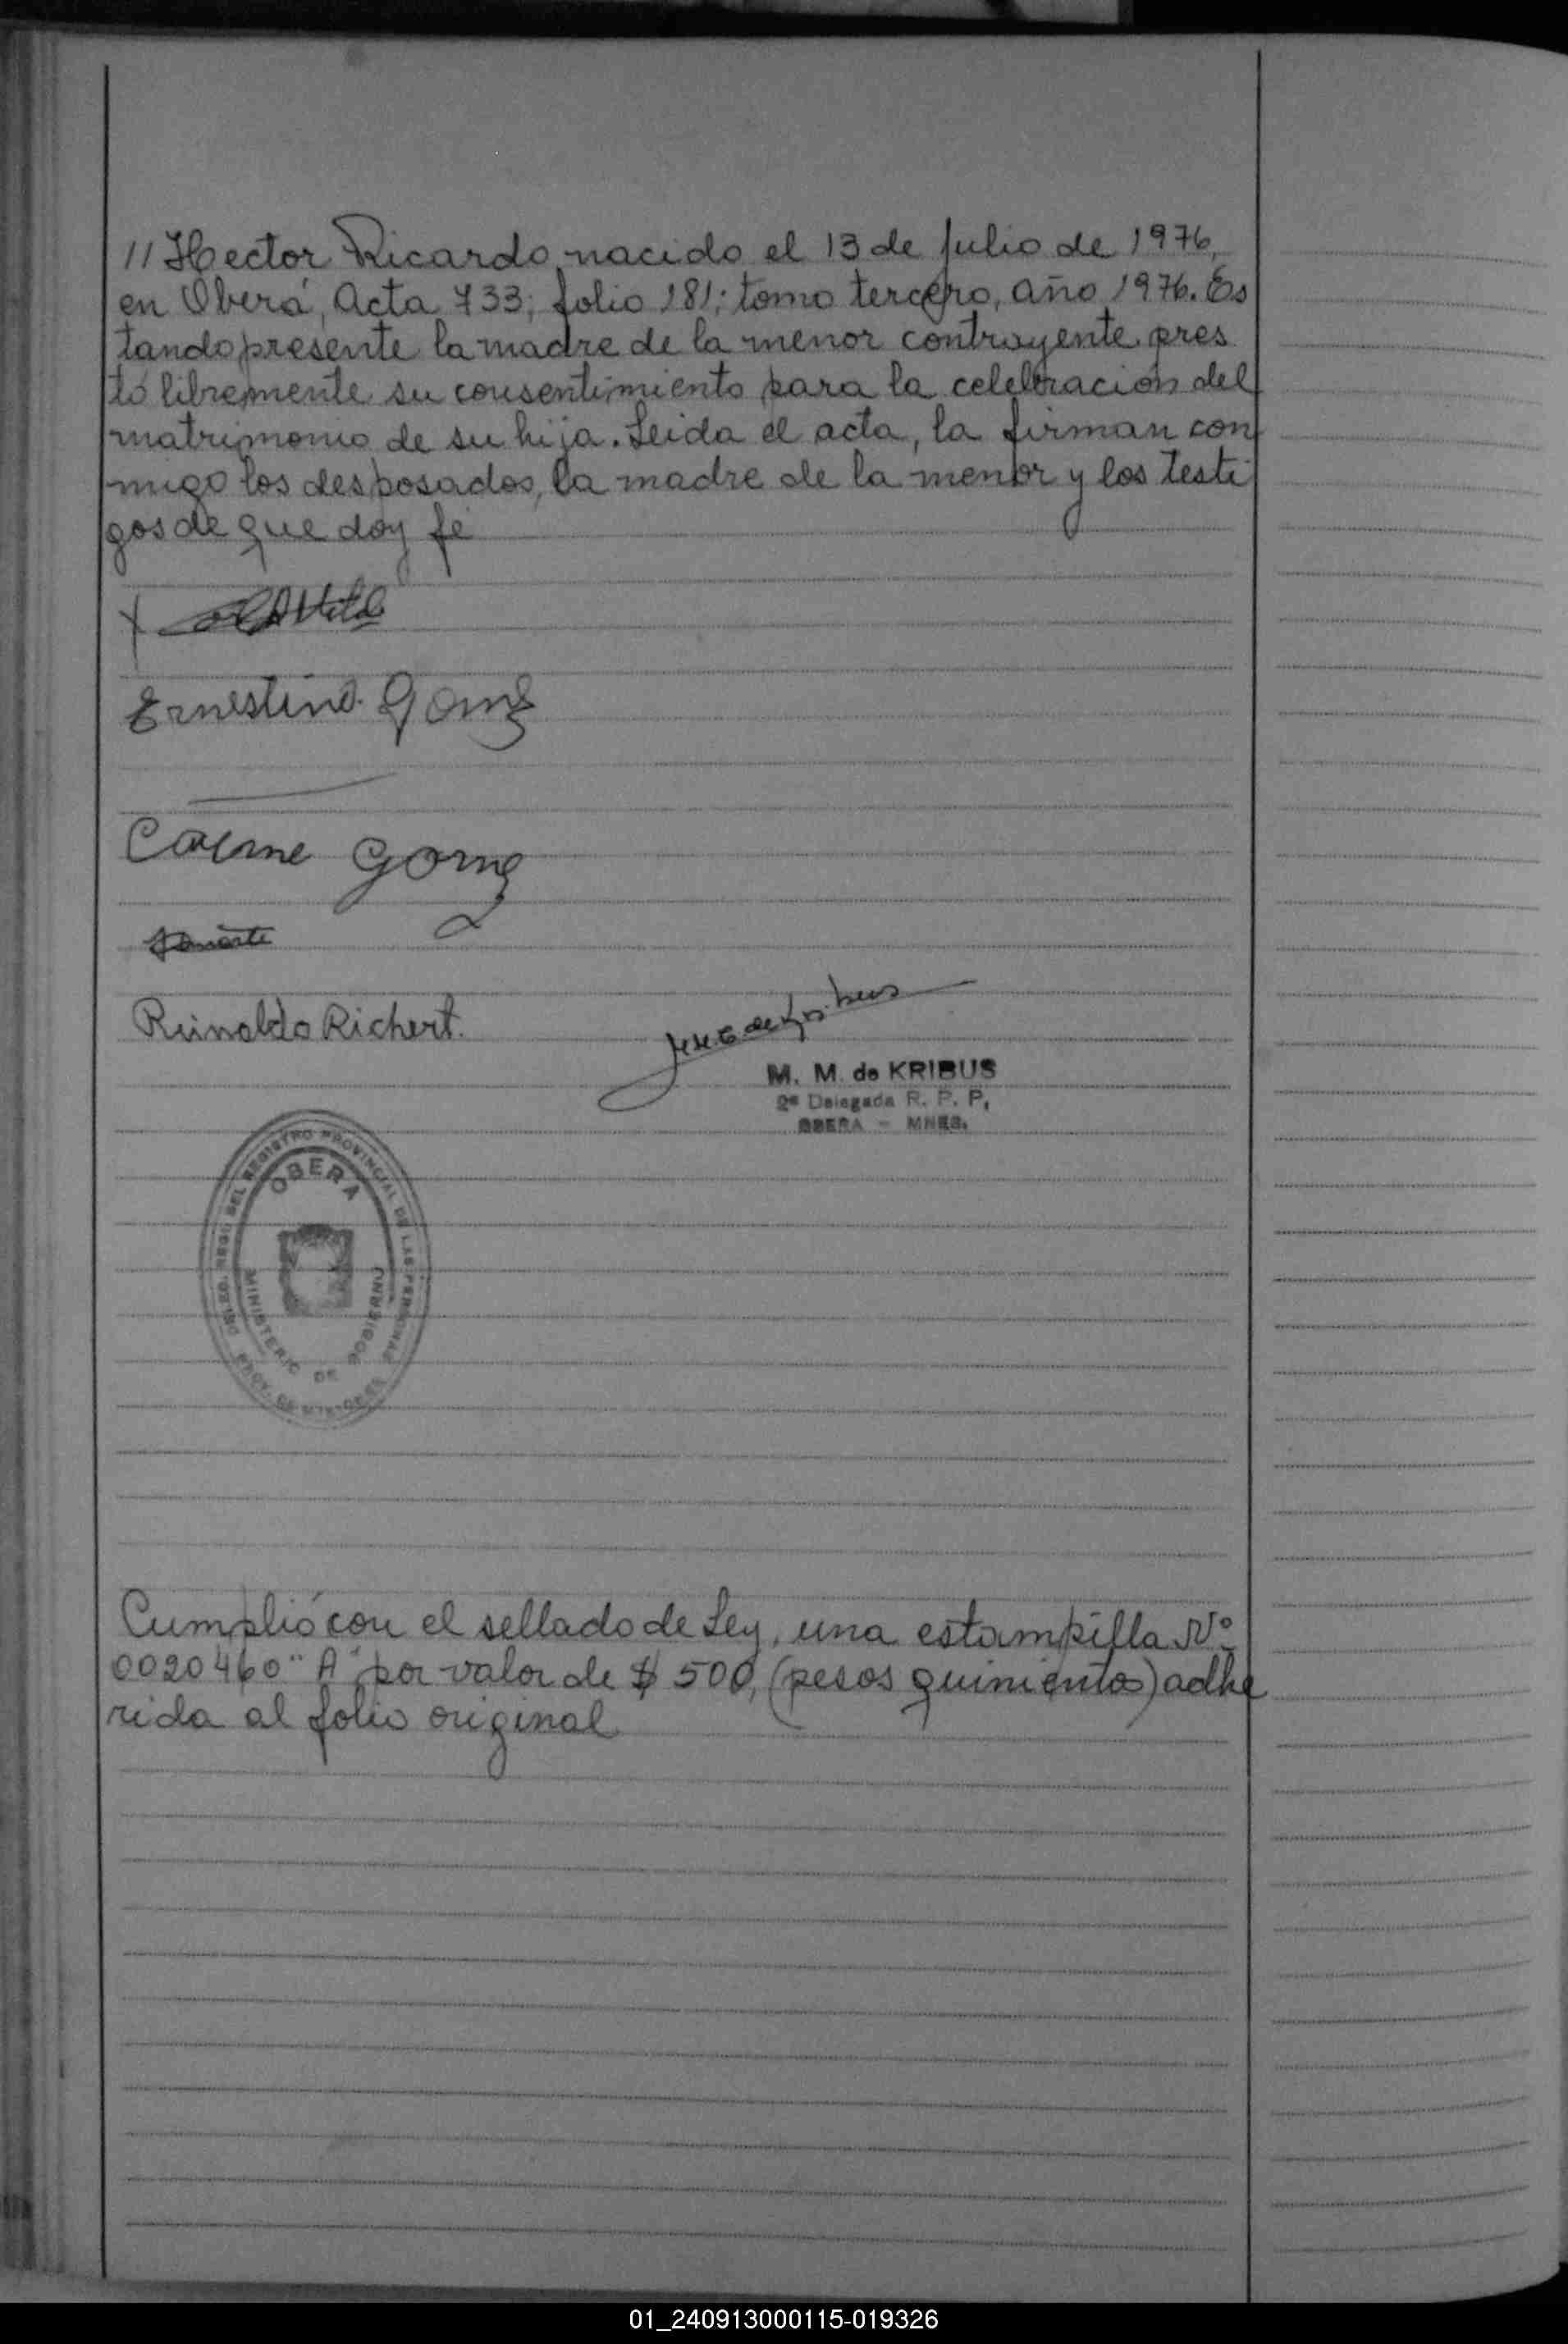 // Hector Ricardo, nacido el 13 de Julio de 1976,
en Oberá, Acta 733; folio 181; tomo tercero, año 1976. Es
tando presente la madre de la menor contrayente pres
tó libremente su consentimiento para la celebración del
matrimonio de su hija. Leida el acta, la firman con
migo los desposados, la madre de la menor y los testi
gos de que doy fé
Ernestina Gomez
Gomez
Reinoldo Richert.
M. M. de KRIBUS
2ª Delegada R. P. P.
OBERA - MNES.
REGISTRO PROVINCIAL DE LAS PERSONAS
OBERA
MINISTERIO DE GOBIERNO
PROV. DE MISIONES
Cumplió con el sellado de Ley, una estampilla Nº
0020460 "A" por valor de $ 500, (pesos quinientos) adhe
rida al folio original
01_240913000115-019326